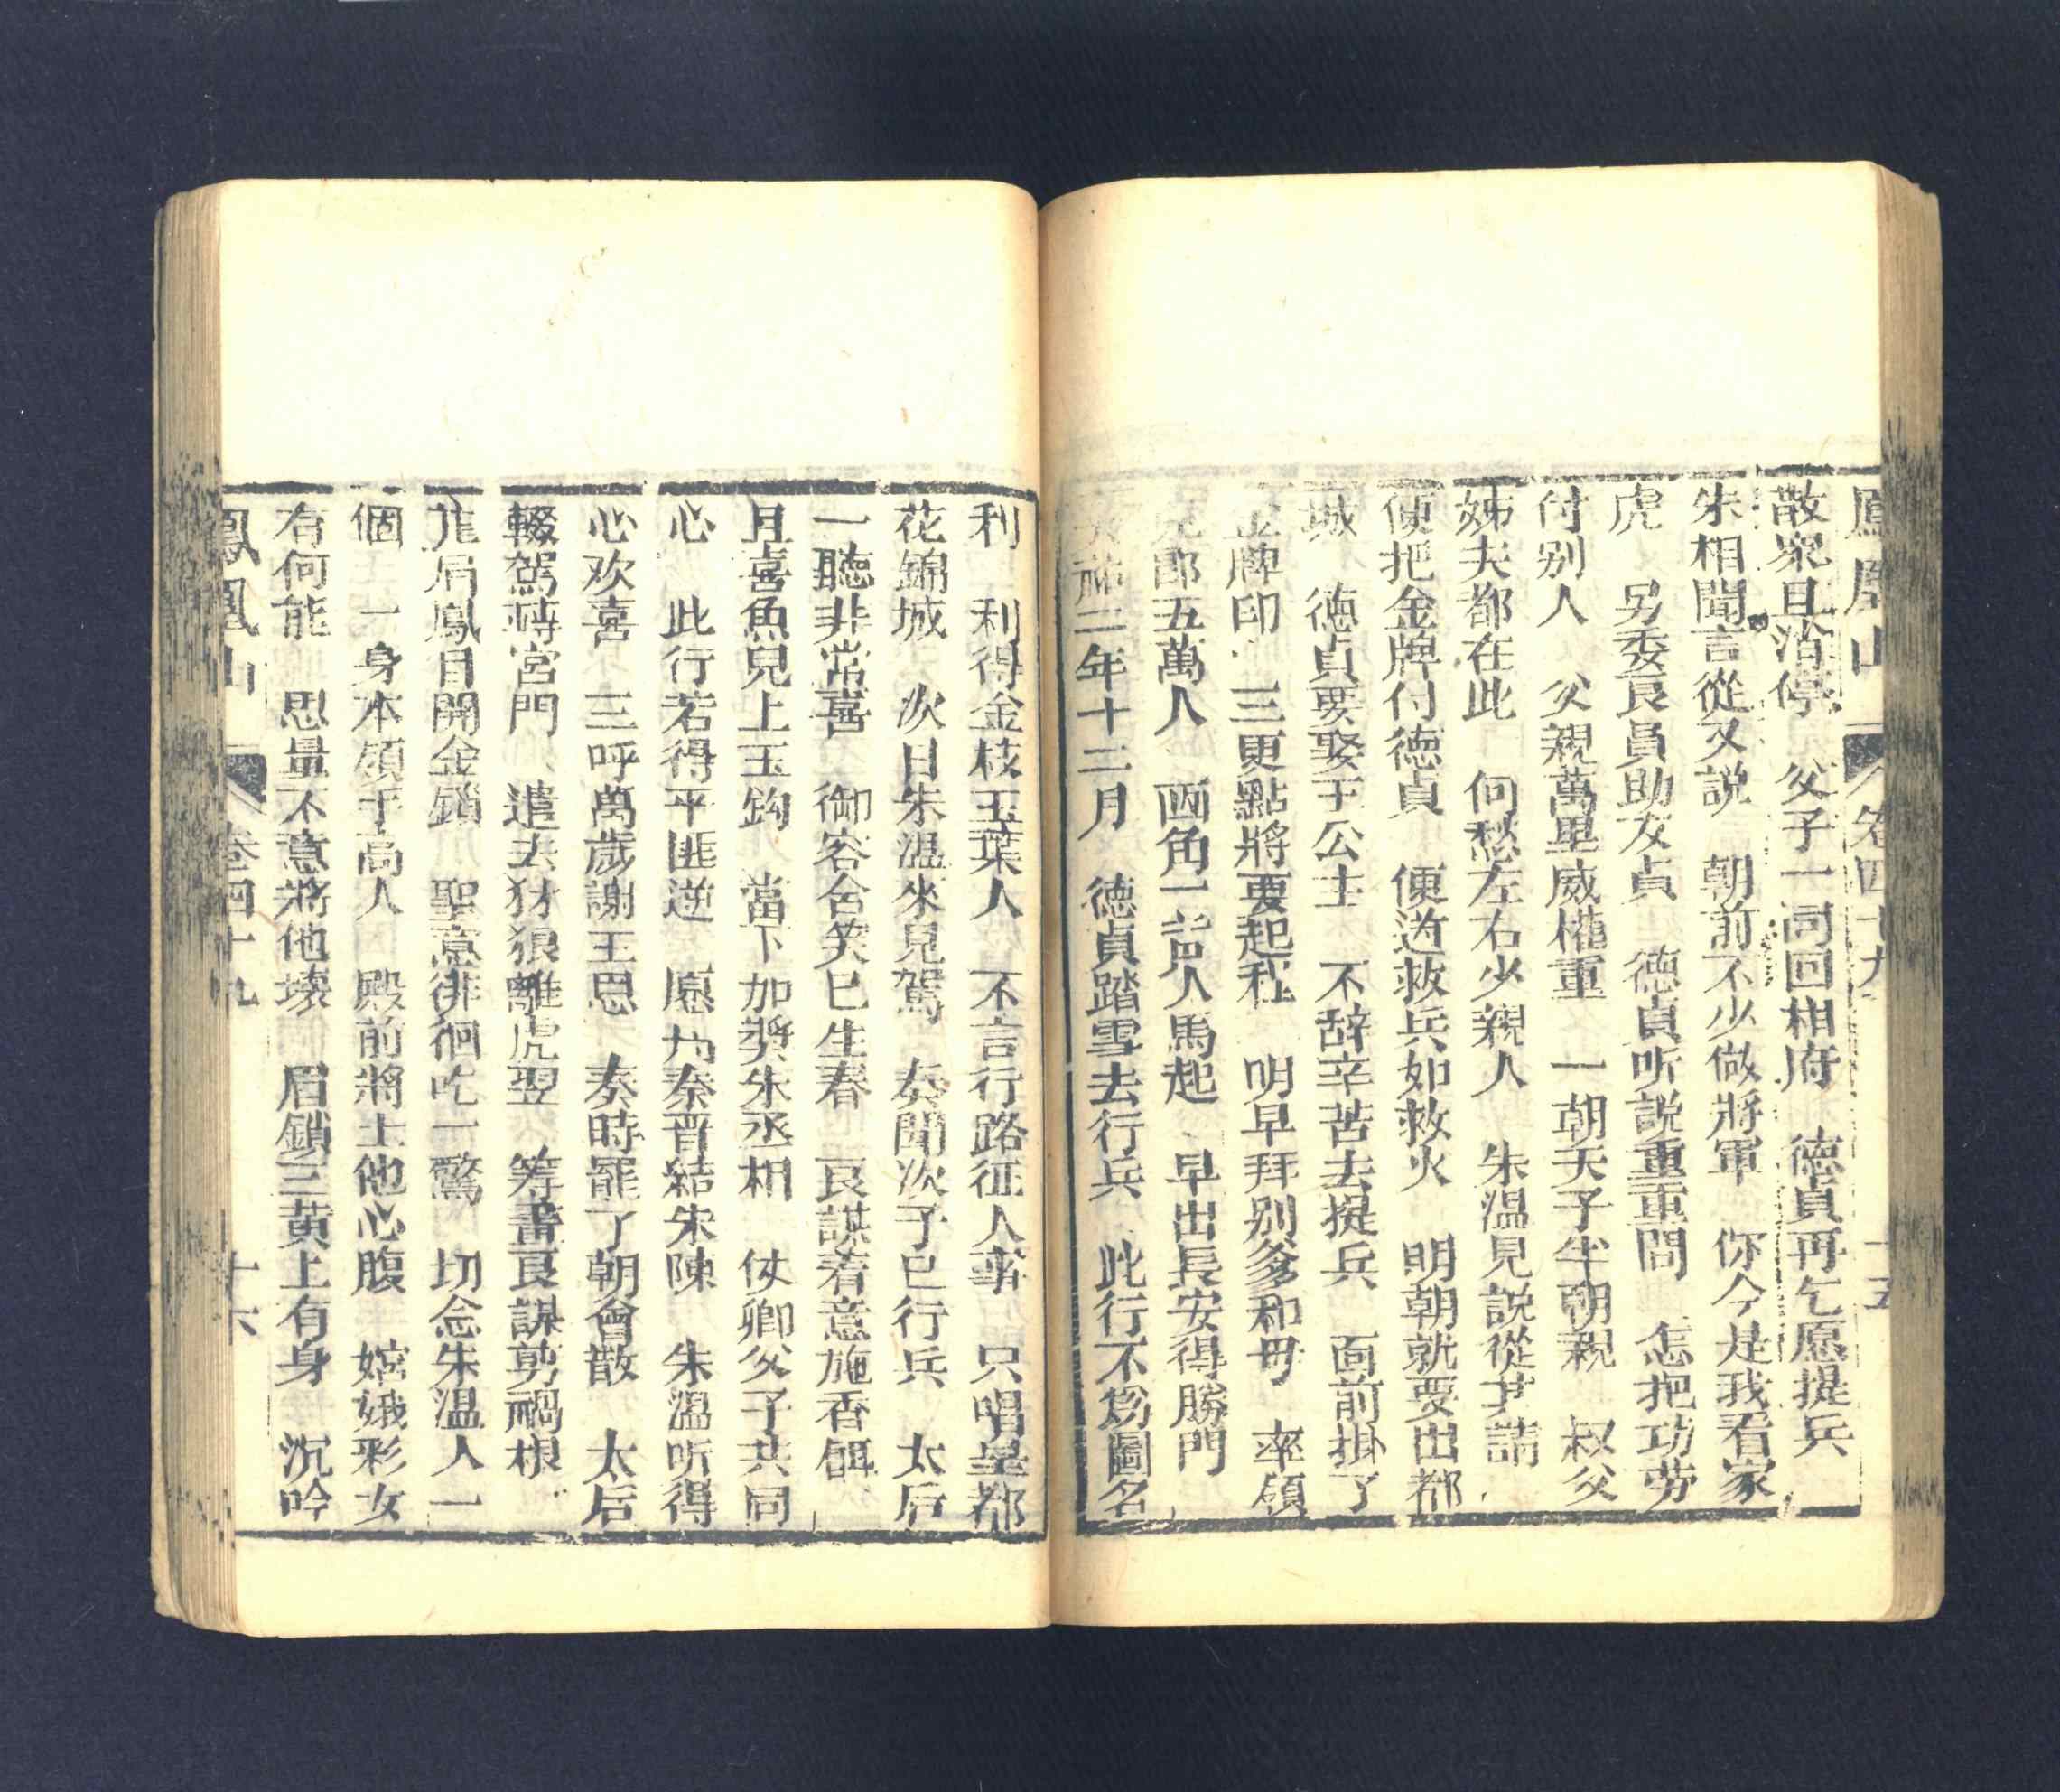 鳳凰山 卷四十九 十五
散衆且消停 父子一同回相府 德貞再乞愿提兵
朱相聞言從又説 朝前不少做將軍 你今是我看家
虎 另委良員助友貞 德貞听説重重問 怎把功劳
付别人 父親萬里威權重 一朝天子半朝親 叔父
姊夫都在此 何愁左右少親人 朱温見説從其請
便把金牌付德貞 便道救兵如救火 明朝就要出都
城 德貞要娶于公主 不辞辛苦去提兵 面前掛了
金牌印 三更點將要起程 明早拜别爹和母 率領
兒郎五萬人 西角一声人馬起 早出長安得勝門
二年十二月 德貞踏雪去行兵 此行不爲圖名
利 利得金枝玉葉人 不言行路征人事 只唱皇都
花錦城 次日朱温來見駕 奏聞次子已行兵 太后
一聽非常喜 御容含笑已生春 良謀着意施香餌
且喜魚兒上玉鈎 當下加奬朱丞相 仗卿父子共同
心 此行若得平匪逆 愿為秦晋結朱陳 朱温听得
心欢喜 三呼萬歲謝王恩 奏時罷了朝會散 太后
輟駕轉宮門 遣去豺狼離虎翌 筹畵良謀剪禍根
龍眉鳳目開金鎖 聖意徘徊吃一驚 切念朱温人一
個 一身本領于高人 殿前將士他心腹 嫔娥彩女
有何能 思量不意將他壊 眉鎖三黄上有身 沉吟
鳳凰山 卷四十九 十六